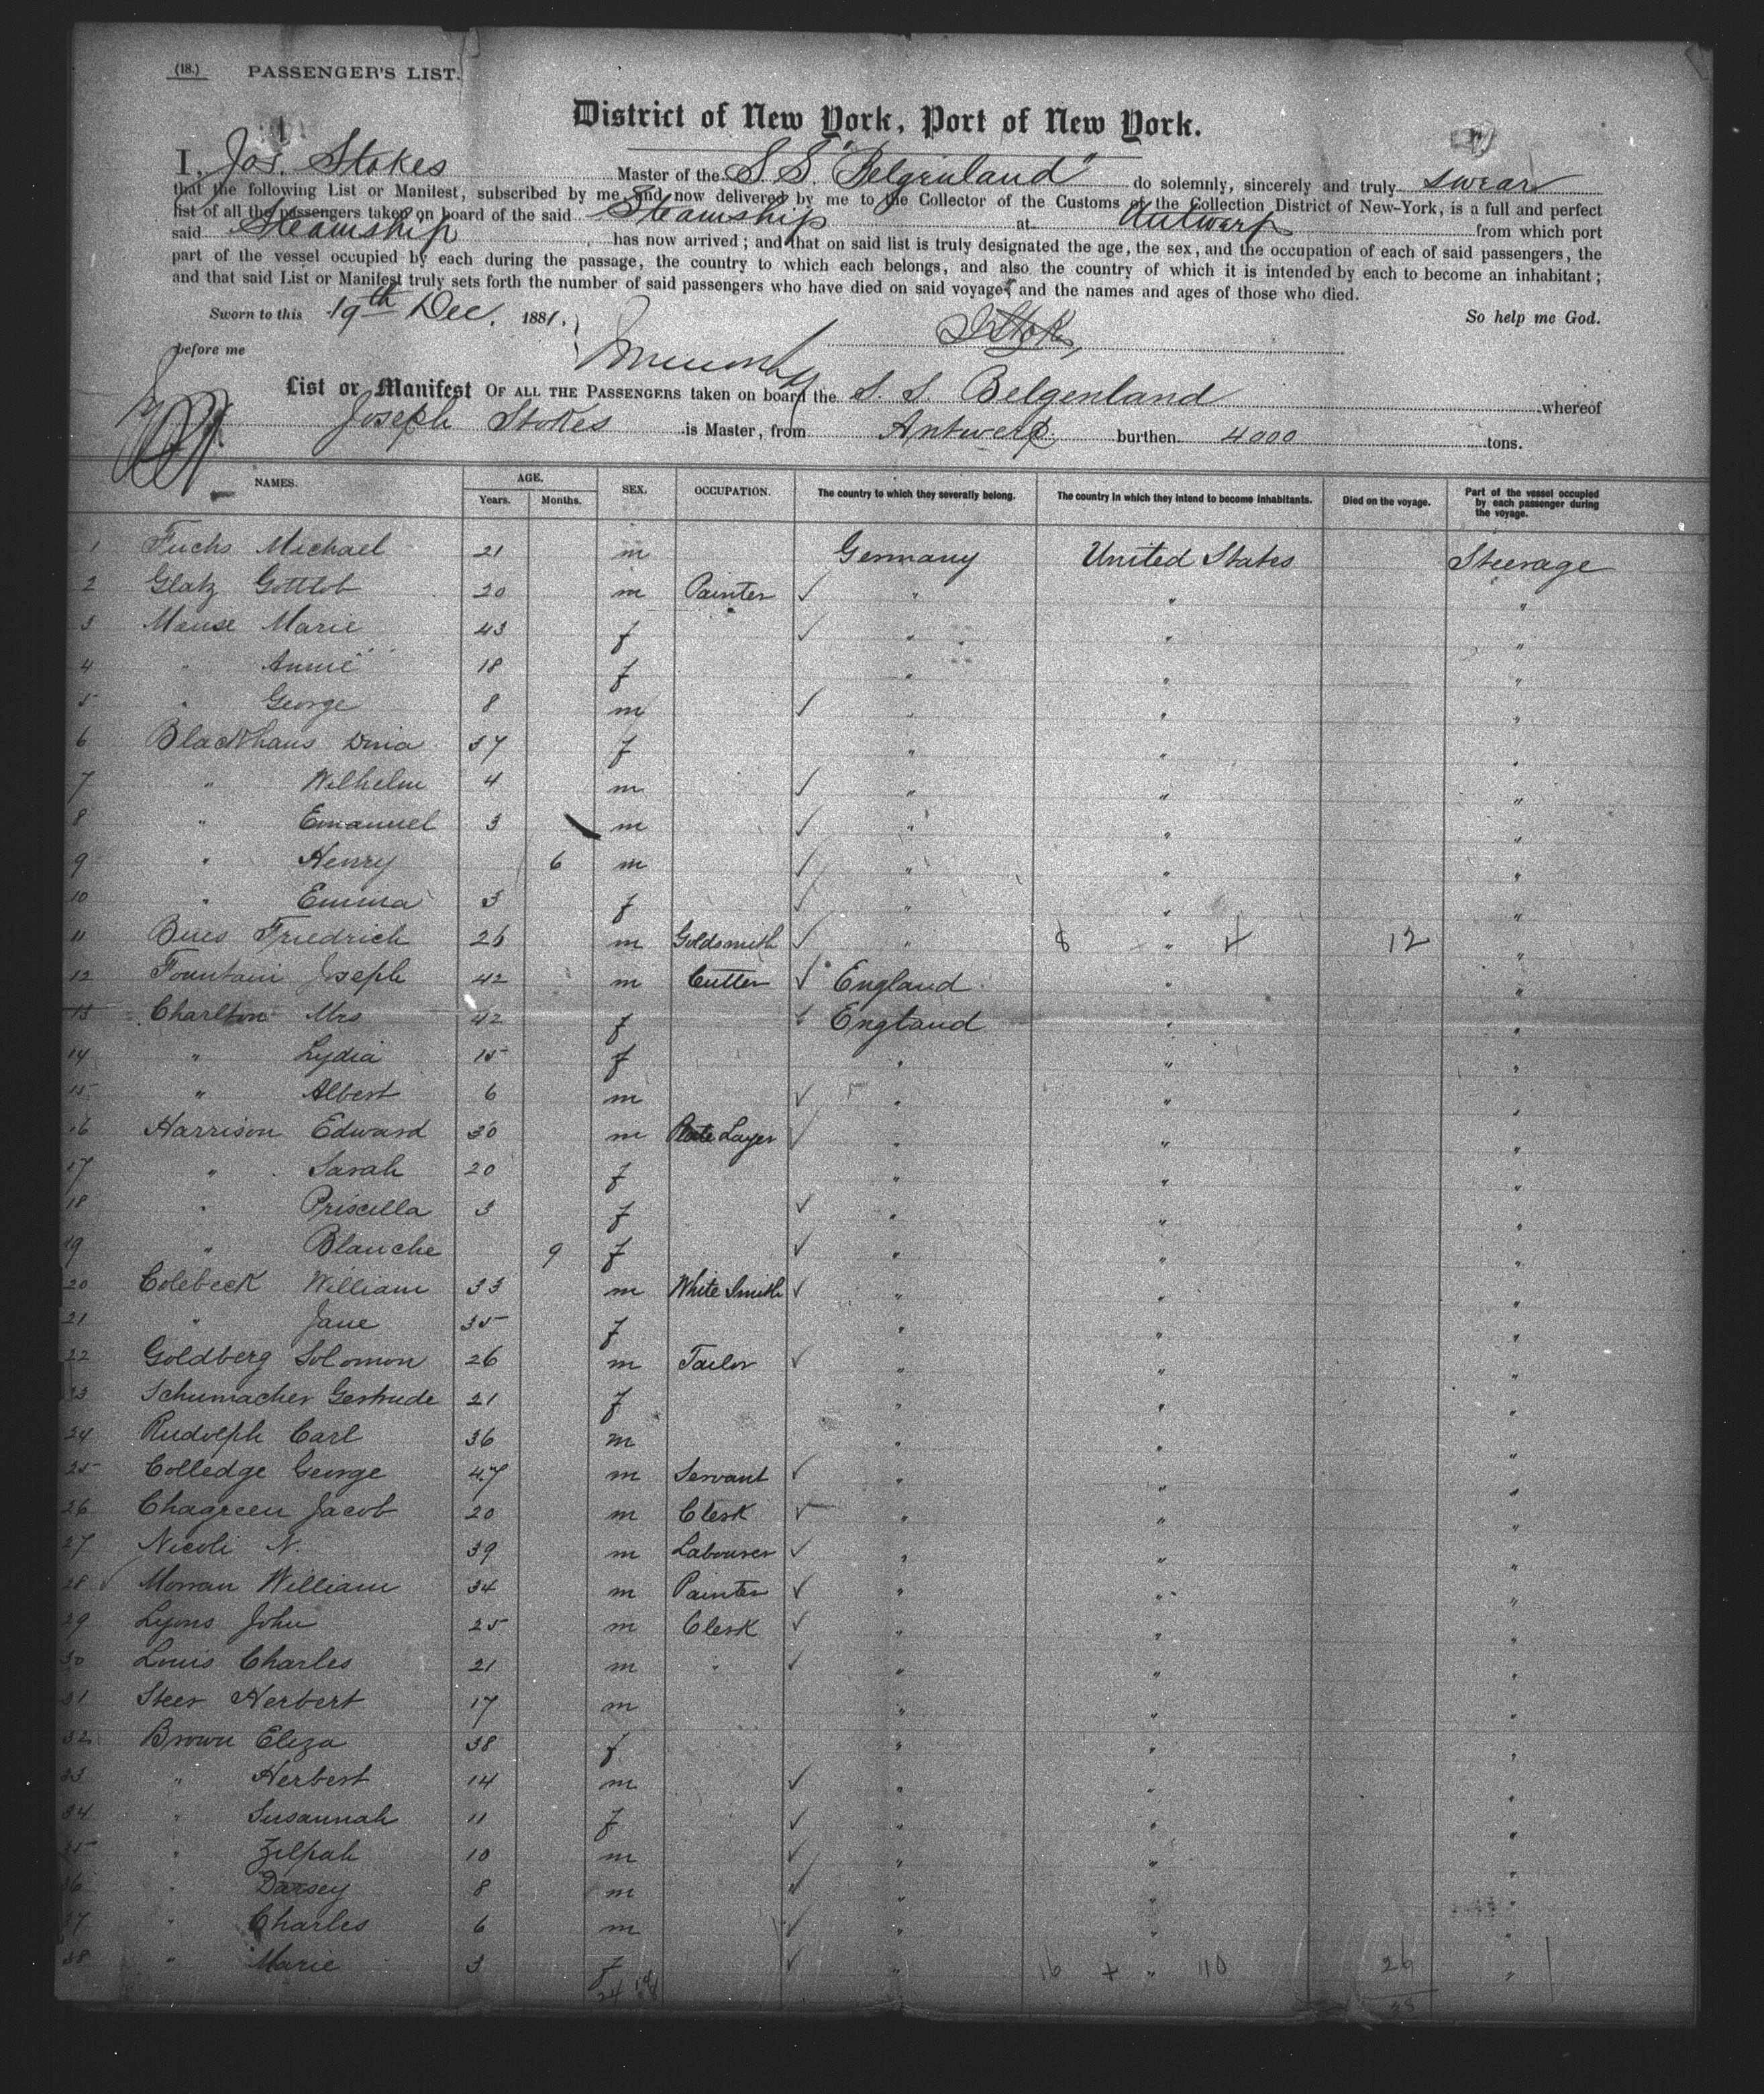 (18.) PASSENGER'S LIST.
District of New York, Port of New York.
I, Jos. Stokes Master of the S S. "Belgenland" do solemnly, sincerely and truly swear
that the following List or Manifest, subscribed by me and now delivered by me to the Collector of the Customs of the Collection District of New-York, is a full and perfect
list of all the passengers taken on board of the said Steamship at Antwerp from which port
said Steamship has now arrived; and that on said list is truly designated the age, the sex, and the occupation of each of said passengers, the
part of the vessel occupied by each during the passage, the country to which each belongs, and also the country of which it is intended by each to become an inhabitant;
and that said List or Manifest truly sets forth the number of said passengers who have died on said voyage, and the names and ages of those who died.
Sworn to this 19th Dec. 1881. JStokes So help me God.
before me
List or Manifest OF ALL THE PASSENGERS taken on board the S. S. Belgenland whereof
Joseph Stokes is Master, from Antwerp burthen 4000 tons.
NAMES. AGE. Years. Months. SEX. OCCUPATION. The country to which they severally belong. The country in which they intend to become inhabitants. Died on the voyage. Part of the vessel occupied by each passenger during the voyage.
1 Fuchs Michael 21 m Germany United States Steerage
2 Glatz Gottlob 20 m Painter ✓ " " "
3 Mause Marie 43 f ✓ " " "
4 " Annie 18 f " " "
5 " George 8 m ✓ " " "
6 Blackhaus Dina 37 f " " "
7 " Wilhelm 4 m ✓ " " "
8 " Emanuel 3 m ✓ " " "
9 " Henry 6 m ✓ " " "
10 " Emma 3 f ✓ " " "
11 Bues Friedrich 26 m Goldsmith ✓ " 8 " 4 12 "
12 Fountain Joseph 42 m Cutter ✓ England " "
13 Charlton Mrs 42 f England " "
14 " Lydia 15 f " " "
15 " Albert 6 m ✓ " " "
16 Harrison Edward 30 m Plate Layer ✓ " " "
17 " Sarah 20 f " " "
18 " Priscilla 3 f ✓ " " "
19 " Blanche 9 f ✓ " " "
20 Colebeck William 33 m White Smith ✓ " " "
21 " Jane 35 f " " "
22 Goldberg Solomon 26 m Tailor ✓ " " "
23 Schumacher Gertrude 21 f " " "
24 Rudolph Carl 36 m " " "
25 Colledge George 47 m Servant ✓ " " "
26 Chagreen Jacob 20 m Clerk ✓ " " "
27 Nicoli N. 39 m Labourer ✓ " " "
28 Morran William 34 m Painter ✓ " " "
29 Lyons John 25 m Clerk ✓ " " "
30 Louis Charles 21 m " ✓ " " "
31 Steer Herbert 17 m " " "
32 Brown Eliza 38 f " " "
33 " Herbert 14 m ✓ " " "
34 " Susannah 11 f ✓ " " "
35 " Zilpah 10 m ✓ " " "
36 " Darsey 8 m ✓ " " "
37 " Charles 6 m ✓ " " "
38 " Marie 3 f ✓ " 16 + " 10 26 "
24